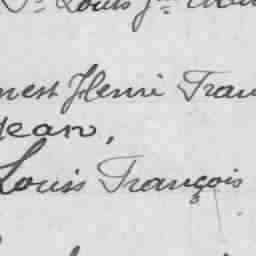 St Louis Jn
nest Henri Fran
Jean,
Louis François